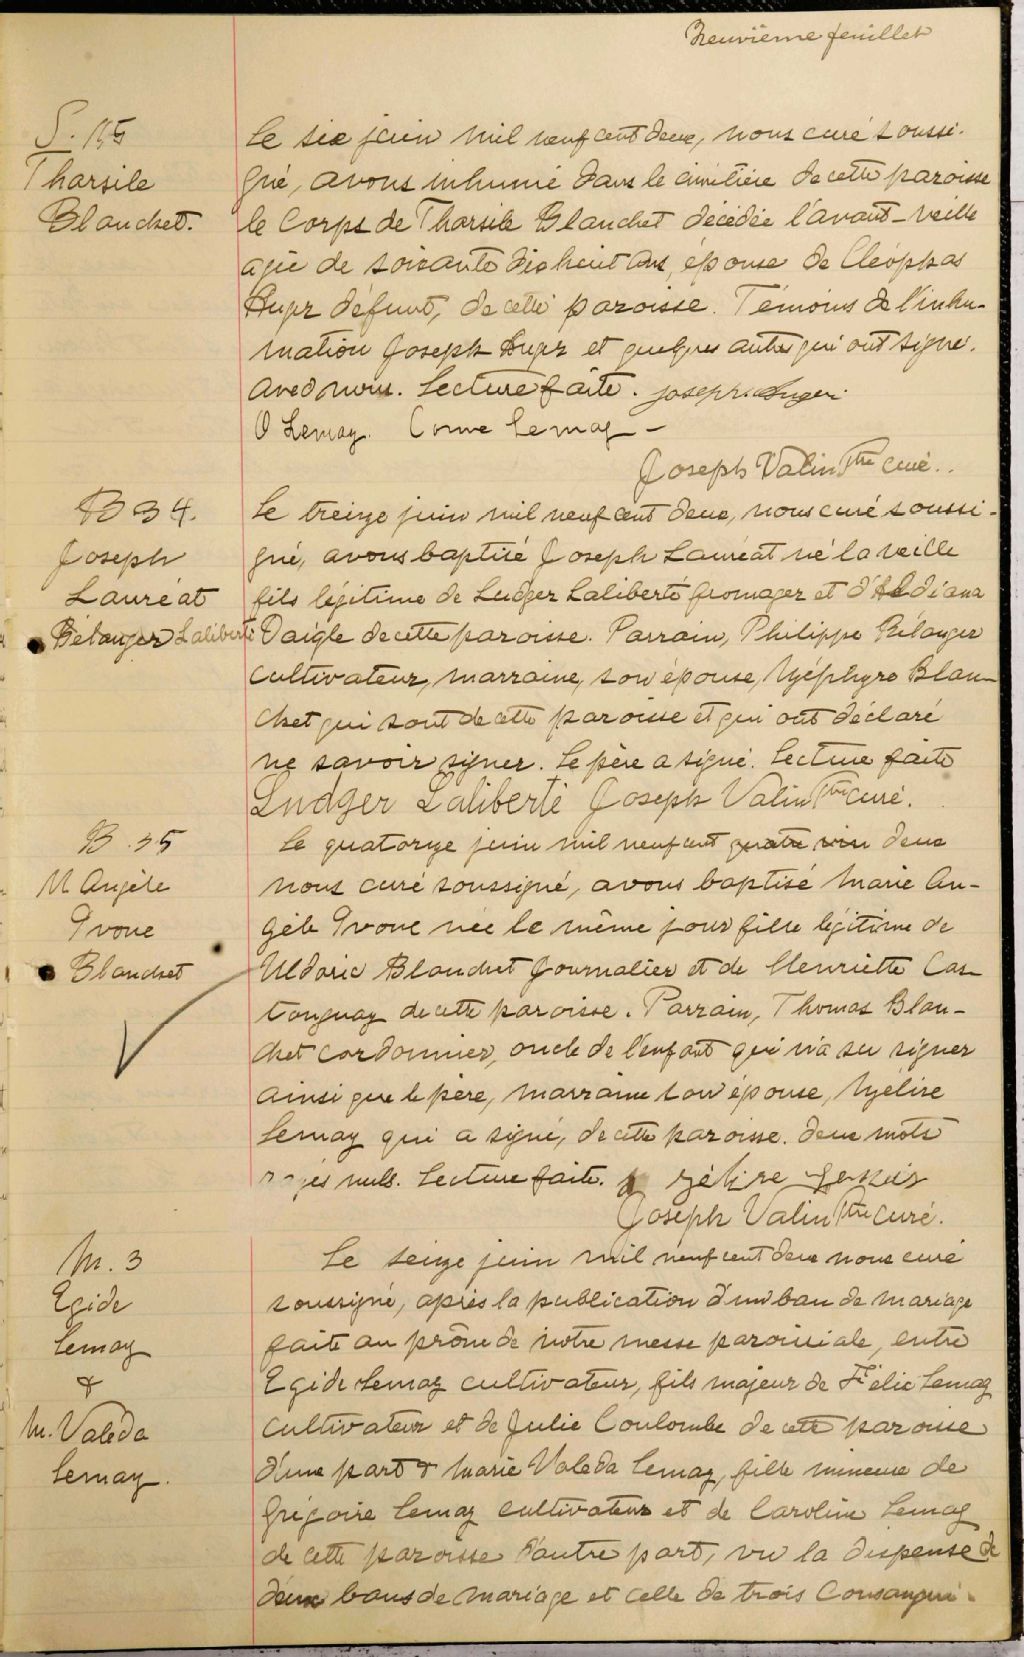 Neuvième feuillet
S. 15
Tharsile
Blanchet.
Le six juin mil neuf cent deux, nous curé soussi-
gné, avons inhumé dans le cimétière de cette paroisse
le Corps de Tharsile Blanchet décédée l'avant-veille
agée de soixante dix huit ans, épouse de Cléophas
défunt, de cette paroisse. Témoins de l'inhu-
mation Joseph et quelques autres qui ont signé.
avec nous. Lecture faite. Joseph Auger
O Lemay. Lemay –
Joseph Valin Ptre curé..
B 34.
Joseph
Lauréat
Bélanger Laliberté
Le treize juin mil neuf cent deux, nous curé soussi-
gné, avons baptisé Joseph Lauréat né la veille
fils légitime de Ludger Laliberté fromager et d'Aldéana
Daigle de cette paroisse. Parrain, Philippe Bélanger
cultivateur, marraine, son épouse, Zéphyre Blan-
chet qui sont de cette paroisse et qui ont déclaré
ne savoir signer. Le père a signé. Lecture faite
Ludger Laliberté Joseph Valin Ptre curé.
B. 35
M Angèle
Yvone
Blanchet
Le quatorze juin mil neuf cent quatre vin deux
nous curé soussigné, avons baptisé Marie An-
gèle Yvone née le même jour fille légitime de
Uldoric Blanchet journalier et de Henriette Cas-
tonguay de cette paroisse. Parrain, Thomas Blan-
chet cordonnier, oncle de l'enfant qui n'a su signer
ainsi que le père, marraine son épouse, Zélire
Lemay qui a signé, de cette paroisse. deux mots
rayés nuls. Lecture faite. Zélire Lemay
Joseph Valin Ptre curé.
M. 3
Egide
Lemay
&
M. Valeda
Lemay.
Le seize juin mil neuf cent deux nous curé
soussigné, après la publication d'un ban de mariage
faite au prône de notre messe paroissiale, entre
Egide Lemay cultivateur, fils majeur de Félix Lemay
cultivateur et de Julie Coulombe de cette paroisse
d'une part & Marie Valeda Lemay, fille mineure de
Grégoire Lemay cultivateur et de Caroline Lemay
de cette paroisse d'autre part, vu la dispense de
deux bans de mariage et celle de trois Consangui-